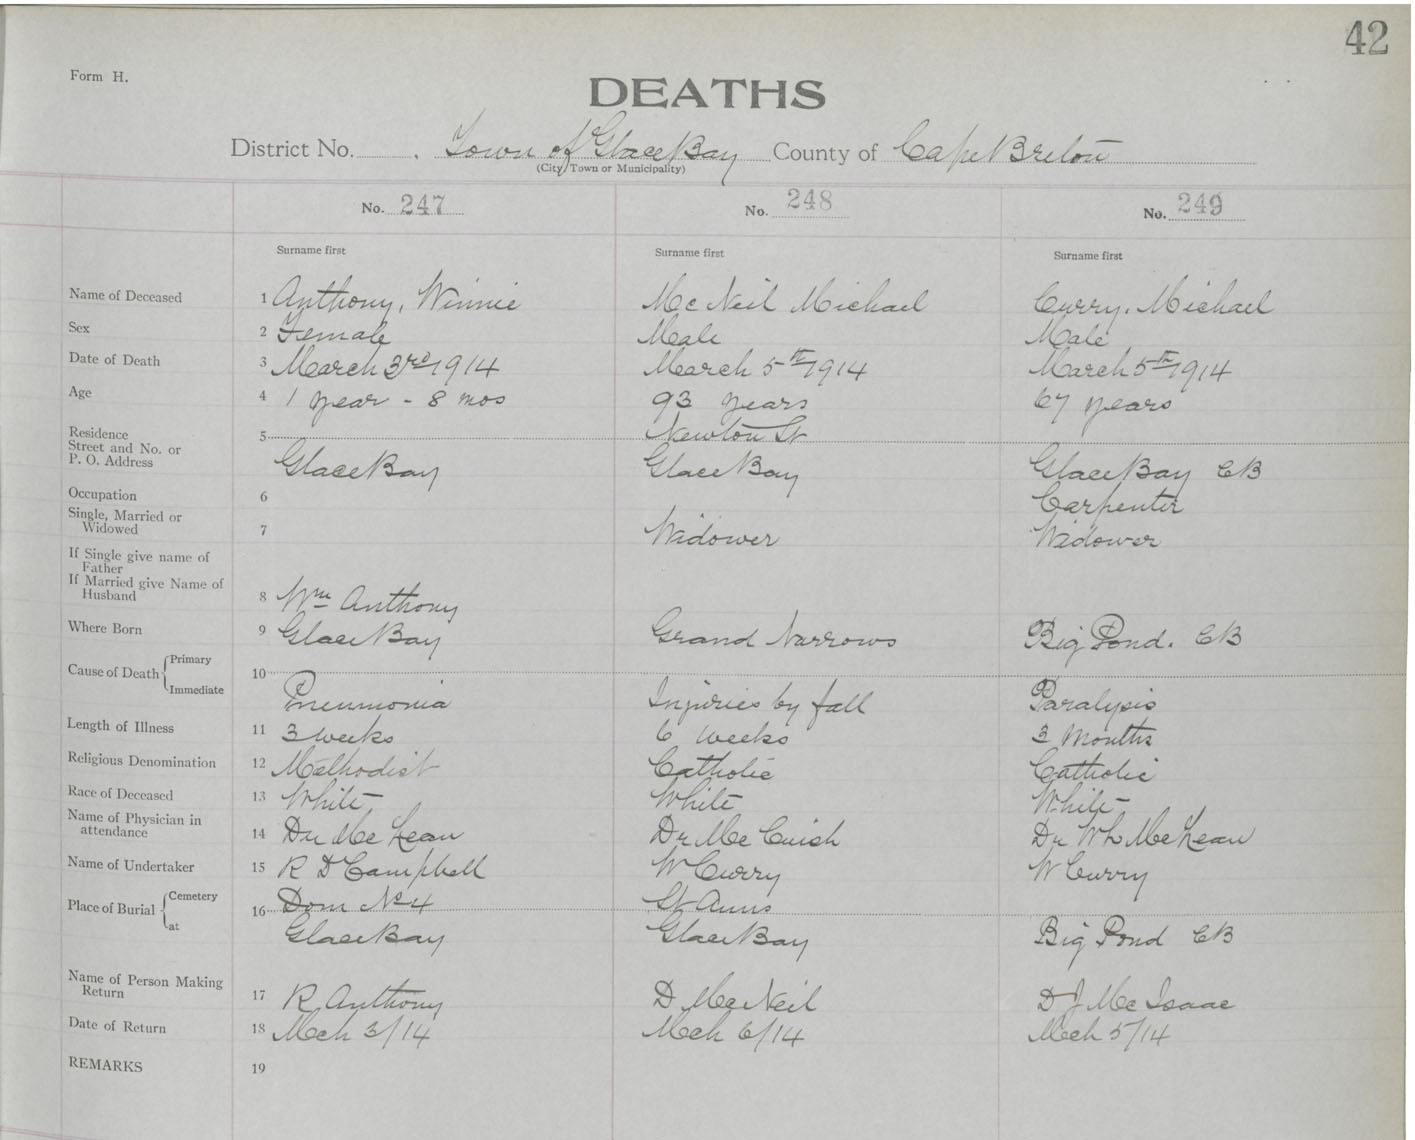 42
Form H.
DEATHS
District No. Town of Glace Bay County of Cape Breton
(City, Town or Municipality)
No. 247 No. 248 No. 249
Surname first Surname first Surname first
Name of Deceased 1 Anthony, Winnie Mc Neil Michael Curry, Michael
Sex 2 Female Male Male
Date of Death 3 March 3rd 1914 March 5th 1914 March 5th 1914
Age 4 1 year - 8 mos 93 years 67 years
Residence 5 Newton St
Street and No. or
P. O. Address Glace Bay Glace Bay Glace Bay CB
Occupation 6 Carpenter
Single, Married or
Widowed 7 Widower Widower
If Single give name of
Father
If Married give Name of
Husband 8 Wm Anthony
Where Born 9 Glace Bay Grand Narrows Big Pond. CB
Cause of Death Primary 10
Immediate Pneumonia Injuries by fall Paralysis
Length of Illness 11 3 weeks 6 weeks 3 Months
Religious Denomination 12 Methodist Catholic Catholic
Race of Deceased 13 White White White
Name of Physician in
attendance 14 Dr Mc Lean Dr Mc Cuish Dr Wh Mc Lean
Name of Undertaker 15 R D Campbell W Curry W Curry
Place of Burial Cemetery 16 Dom No 4 St Anns
at Glace Bay Glace Bay Big Pond CB
Name of Person Making
Return 17 R Anthony D Mc Neil D J Mc Isaac
Date of Return 18 Mch 3/14 Mch 6/14 Mch 5/14
REMARKS 19